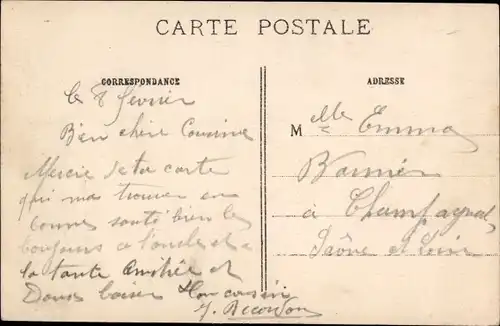 CARTE POSTALE
CORRESPONDANCE
ADRESSE
le 8 fevrier
Bien chère Cousine
Mercie de ta carte
qui mas trouver en
bonne santé bien le
boujours a l'oncle et a
la tante Amitiée et
Doux baiser Ton cousin
J.
M elle Emma
à Champagnat
Saône et Loire